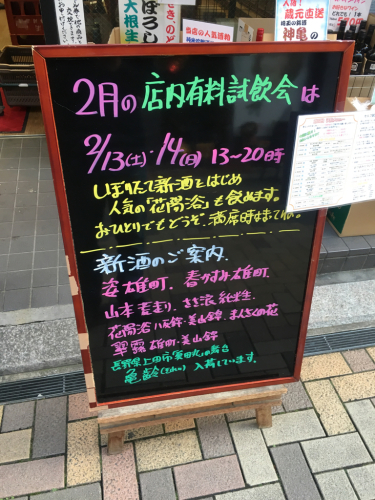 蔵元直送
神亀の
大根生
当店の人気酒粕
2月の 店内有料試飲会 は
2/13(土)・14(日) 13〜20時
しぼりたて新酒をはじめ
人気の「花陽浴」も飲めます。
おひとりでもどうぞ。満席時はまってね。
新酒のご案内.
姿 雄町. 春かすみ雄町.
山本 きさ浪 純米生.
花陽浴 八反錦・美山錦. まんさくの花
翠露 雄町・美山錦
長野県上田市真田丸の舞台
亀齢(きれい) 入荷しています。